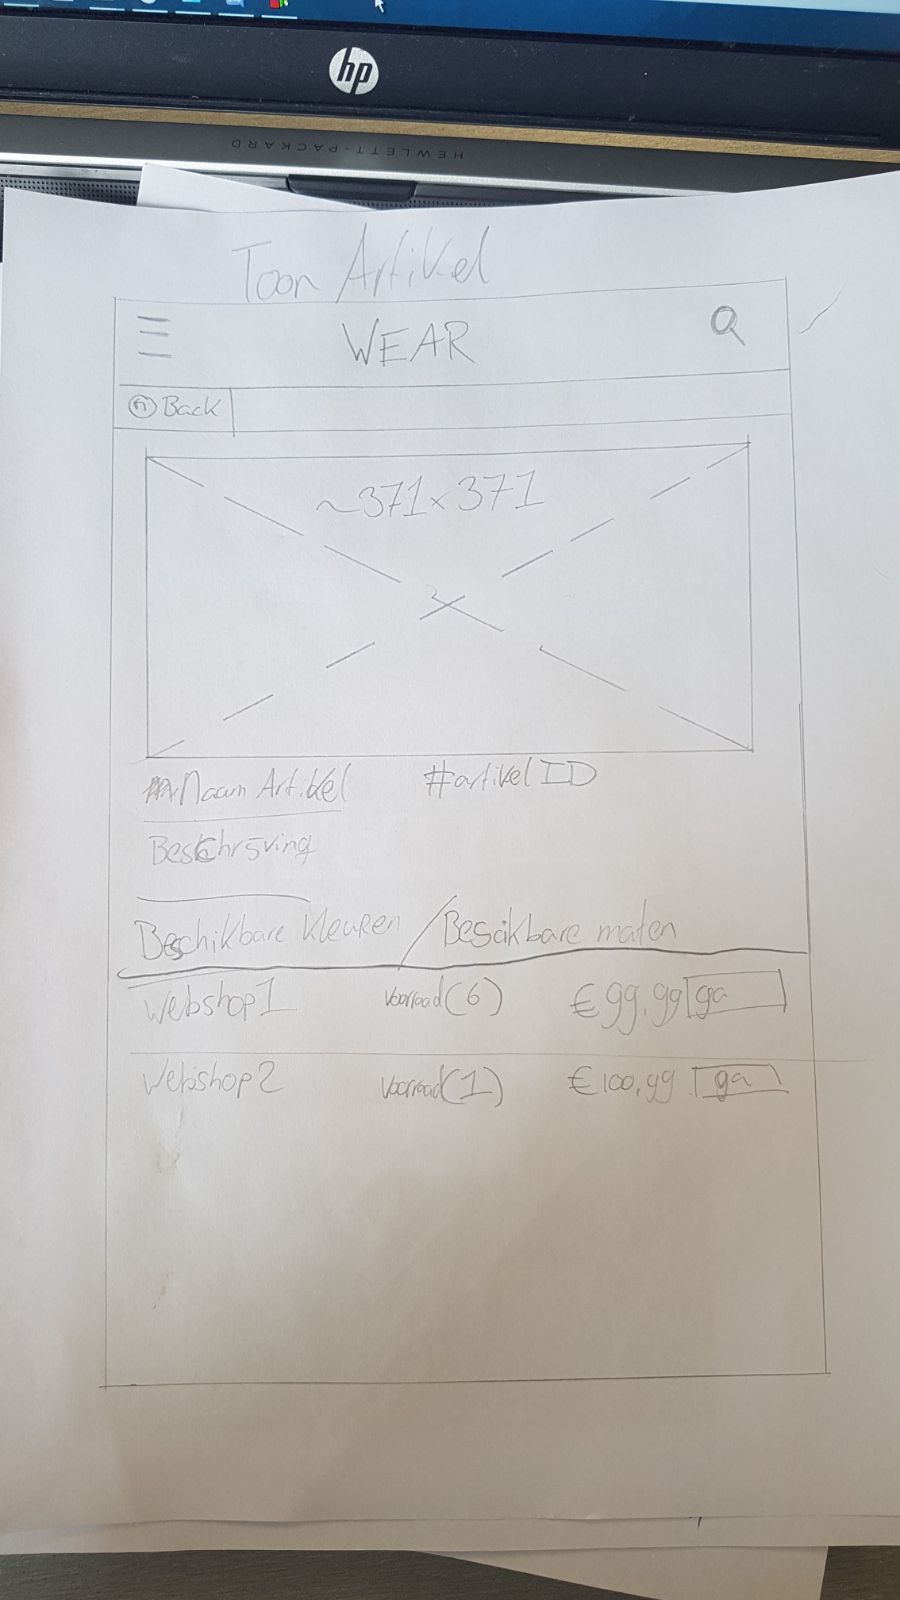 hp
HEWLETT-PACKARD
Toon Artikel
WEAR
Back
~371x371
Naam Artikel #artikel ID
Beschrijving
Beschikbare kleuren / Bescikbare maten
Webshop1 Voorraad(6) € 99,99 ga
Webshop2 Voorraad(1) € 100,99 ga